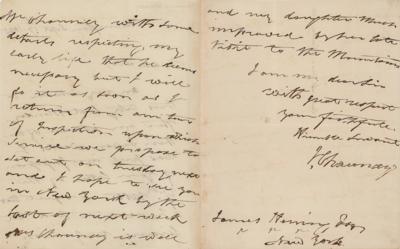 Mr Chauncey with some
details respecting my
early life that he deems
necessary but I will
do it as soon as I
return from a tour
of Inspection upon which
service we propose to
set out on tuesday next
and I hope to see you
in New York by the
last of next week
Mrs Chauncey is well
and my daughter Much
improved by her late
visit to the Mountains
I am my dear Sir
with great respect
your faithful
Humble Servant
I Chauncey
James Herring Esqr
New York